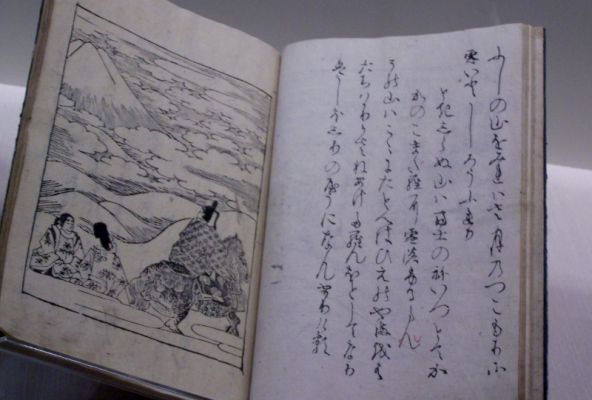 ふしの山を見れはさ月のつこもりに
雪いとしろうふれり
時しらぬ山は富士のねいつとてか
かのこまたらに雪のふるらん
その山はこゝにたとへはひえの山をは
たちはかりかさねあけたらんほとしてなり
はしほしりのやうになんありける